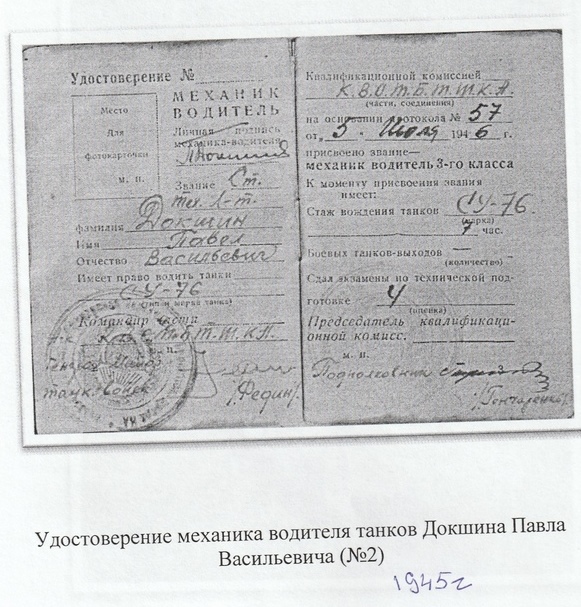 Удостоверение №
МЕХАНИК
ВОДИТЕЛЬ
Место
Для
фотокарточки
м. п.
Личная подпись
механика-водителя
Звание Ст.
тех. л-т.
фамилия Докшин
Имя Павел
Отчество Васильевич
Имеет право водить танки
СУ-76
Командир части
м. п.
/Федин/
Квалификационной комиссией
К.В.О.Т.Б.Т.Ш.К.А.
(части, соединения)
на основании протокола № 57
от „5" Июля 1946 г.
присвоено звание—
механик водитель 3-го класса
К моменту присвоения звания
имеет:
Стаж вождения танков СУ-76.
(марка)
7 час.
Боевых танков-выходов —
(количество)
Сдал экзамены по технической под-
готовке 4
(оценка)
Председатель квалификаци-
онной комисс.
м. п.
Подполковник
/Гончаренко/
Удостоверение механика водителя танков Докшина Павла
Васильевича (№2)
1945г